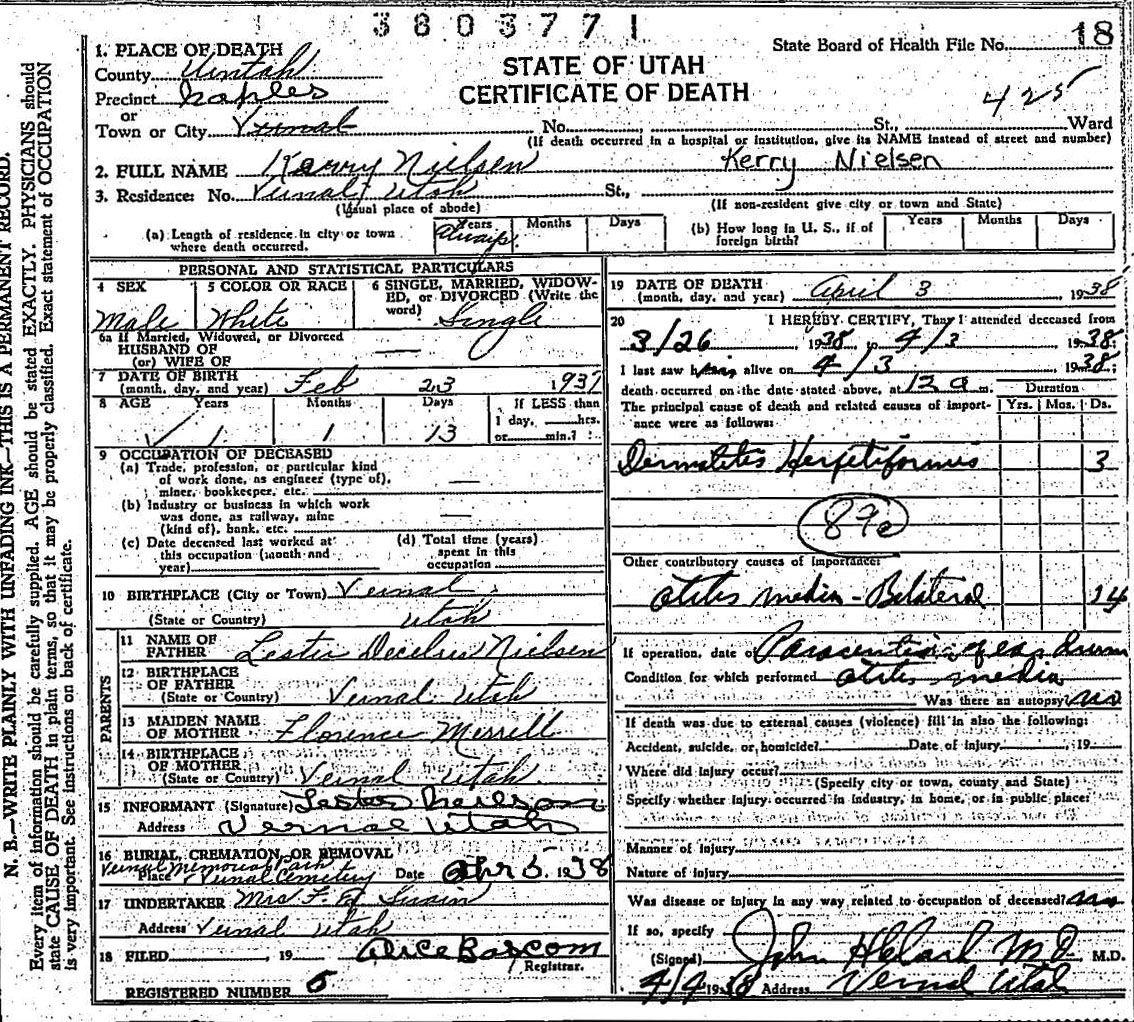 3803771
18
State Board of Health File No.
1. PLACE OF DEATH
County Uintah
STATE OF UTAH
CERTIFICATE OF DEATH
425
Precinct Naples
or
Town or City Vernal No. St., Ward
(If death occurred in a hospital or institution, give its NAME instead of street and number)
2. FULL NAME Kerry Nielsen Kerry Nielsen
3. Residence: No. Vernal, Utah St.,
(Usual place of abode) (If non-resident give city or town and State)
(a) Length of residence in city or town where death occurred. Years Always Months Days
(b) How long in U. S., if of foreign birth? Years Months Days
PERSONAL AND STATISTICAL PARTICULARS
4 SEX Male
5 COLOR OR RACE White
6 SINGLE, MARRIED, WIDOWED, or DIVORCED (Write the word) Single
6a If Married, Widowed, or Divorced
HUSBAND OF
(or) WIFE OF —
7 DATE OF BIRTH
(month, day, and year) Feb 23 1937
8 AGE Years Months Days If LESS than
1 day, hrs.
or min.?
✓ 1 1 13
9 OCCUPATION OF DECEASED
(a) Trade, profession, or particular kind
of work done, as engineer (type of), —
miner, bookkeeper, etc.
(b) Industry or business in which work
was done, as railway, mine —
(kind of), bank, etc.
(c) Date deceased last worked at
this occupation (month and
year)
(d) Total time (years)
spent in this
occupation
10 BIRTHPLACE (City or Town) Vernal
(State or Country) Utah
PARENTS
11 NAME OF
FATHER Lester Nielsen
12 BIRTHPLACE
OF FATHER
(State or Country) Vernal Utah
13 MAIDEN NAME
OF MOTHER Florence Merrell
14 BIRTHPLACE
OF MOTHER
(State or Country) Vernal Utah
15 INFORMANT (Signature) Lester Neilson
Address Vernal Utah
16 BURIAL, CREMATION, OR REMOVAL
Vernal Memorial Park
Place Vernal Cemetery Date Apr 5, 1938
17 UNDERTAKER Mrs F. Swain
Address Vernal Utah
18 FILED , 19 Alice Bascom
Registrar.
REGISTERED NUMBER 5
19 DATE OF DEATH
(month, day, and year) April 3 , 1938
20 I HEREBY CERTIFY, That I attended deceased from
3/26 1938, to 4/3 1938
I last saw him alive on 4/3 1938;
death occurred on the date stated above, at 12 a m.
Duration
The principal cause of death and related causes of importance were as follows:
Yrs. Mos. Ds.
Dermatitis Herpetiformis 3
87e
Other contributory causes of importance:
Otites media - Bilateral 14
If operation, date of Paracentisis of ear drum
Condition for which performed otites media
Was there an autopsy? no
If death was due to external causes (violence) fill in also the following:
Accident, suicide, or homicide? Date of Injury , 19
Where did injury occur?
(Specify city or town, county and State)
Specify whether injury occurred in industry, in home, or in public place:
Manner of injury
Nature of injury
Was disease or injury in any way related to occupation of deceased? no
If so, specify
(Signed) John M D. M.D.
4/4 1938 Address Vernal Utah
N. B.—WRITE PLAINLY WITH UNFADING INK—THIS IS A PERMANENT RECORD.
Every item of information should be carefully supplied. AGE should be stated EXACTLY. PHYSICIANS should
state CAUSE OF DEATH in plain terms, so that it may be properly classified. Exact statement of OCCUPATION
is very important. See instructions on back of certificate.